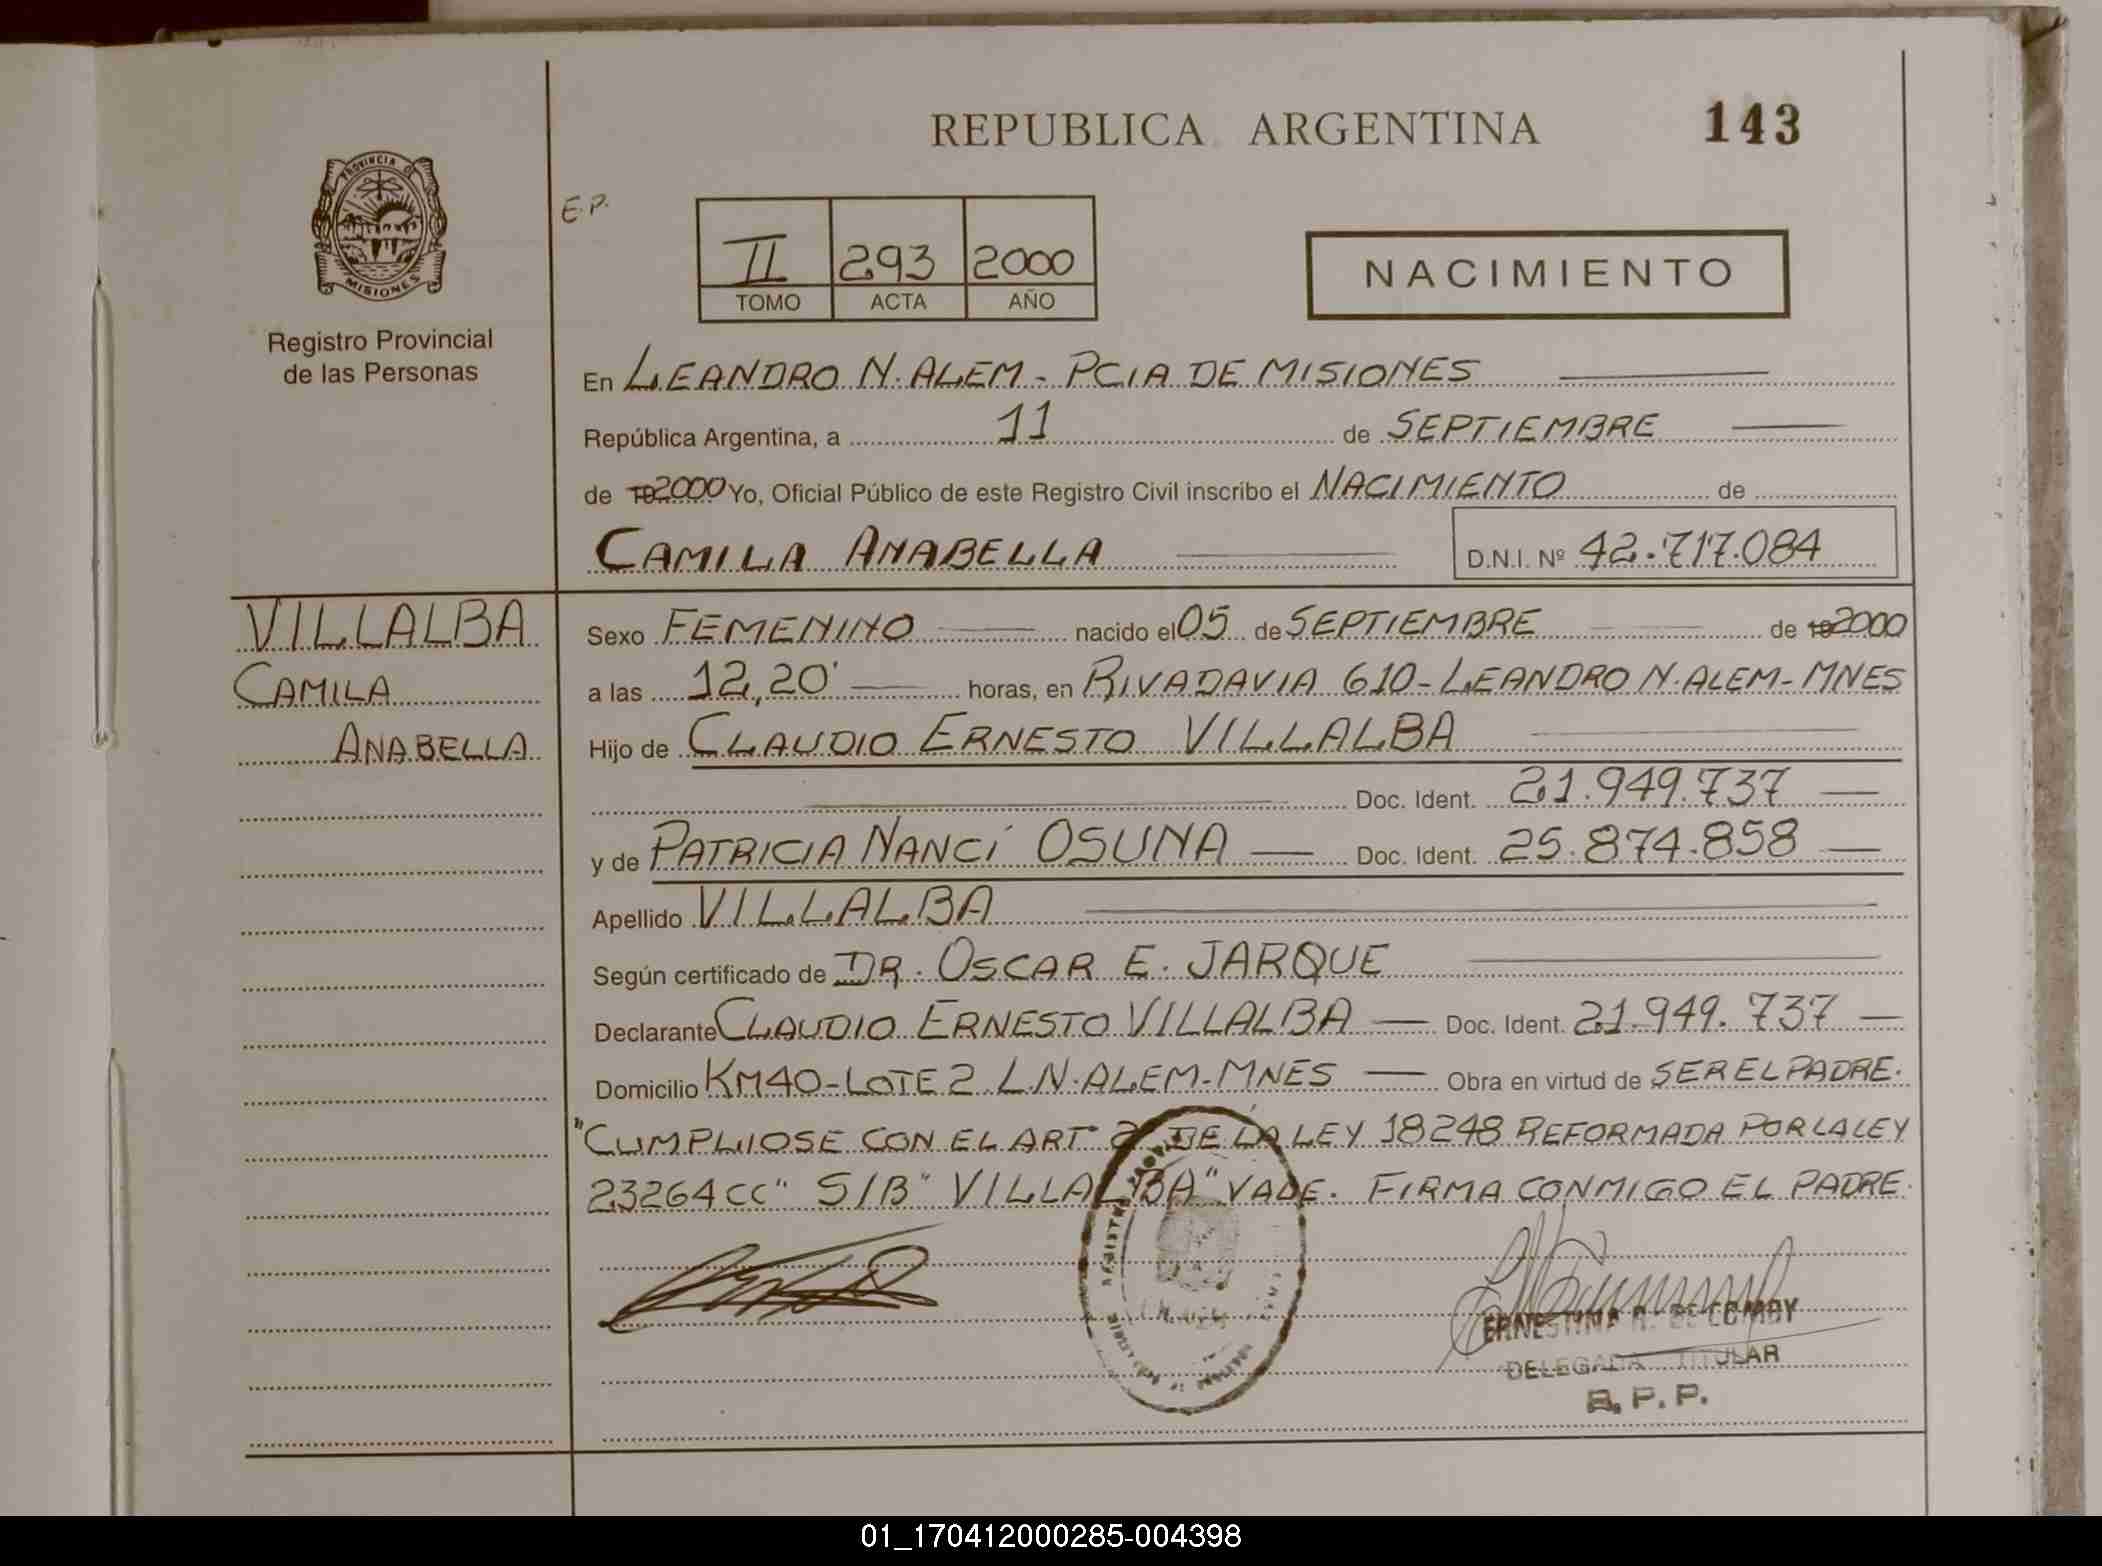 REPUBLICA ARGENTINA
143
PROVINCIA DE
MISIONES
Registro Provincial
de las Personas
E.P.
II 293 2000
TOMO ACTA AÑO
NACIMIENTO
En LEANDRO N. ALEM - PCIA DE MISIONES
República Argentina, a 11 de SEPTIEMBRE
de 19 2000 Yo, Oficial Público de este Registro Civil inscribo el NACIMIENTO de
CAMILA ANABELLA D.N.I. Nº 42.717.084
VILLALBA
CAMILA
ANABELLA
Sexo FEMENINO nacido el 05 de SEPTIEMBRE de 19 2000
a las 12,20' horas, en RIVADAVIA 610 - LEANDRO N. ALEM - MNES
Hijo de CLAUDIO ERNESTO VILLALBA
Doc. Ident. 21.949.737
y de PATRICIA NANCÍ OSUNA Doc. Ident. 25.874.858
Apellido VILLALBA
Según certificado de DR. OSCAR E. JARQUE
Declarante CLAUDIO ERNESTO VILLALBA Doc. Ident. 21.949.737
Domicilio KM40-LOTE 2 L.N. ALEM-MNES Obra en virtud de SER EL PADRE.
"CUMPLIOSE CON EL ART° 2° DE LA LEY 18248 REFORMADA POR LA LEY
23264 CC" S/B "VILLALBA" VALE. FIRMA CONMIGO EL PADRE.
ERNESTINA R. DE
DELEGADA TITULAR
R.P.P.
01_170412000285-004398